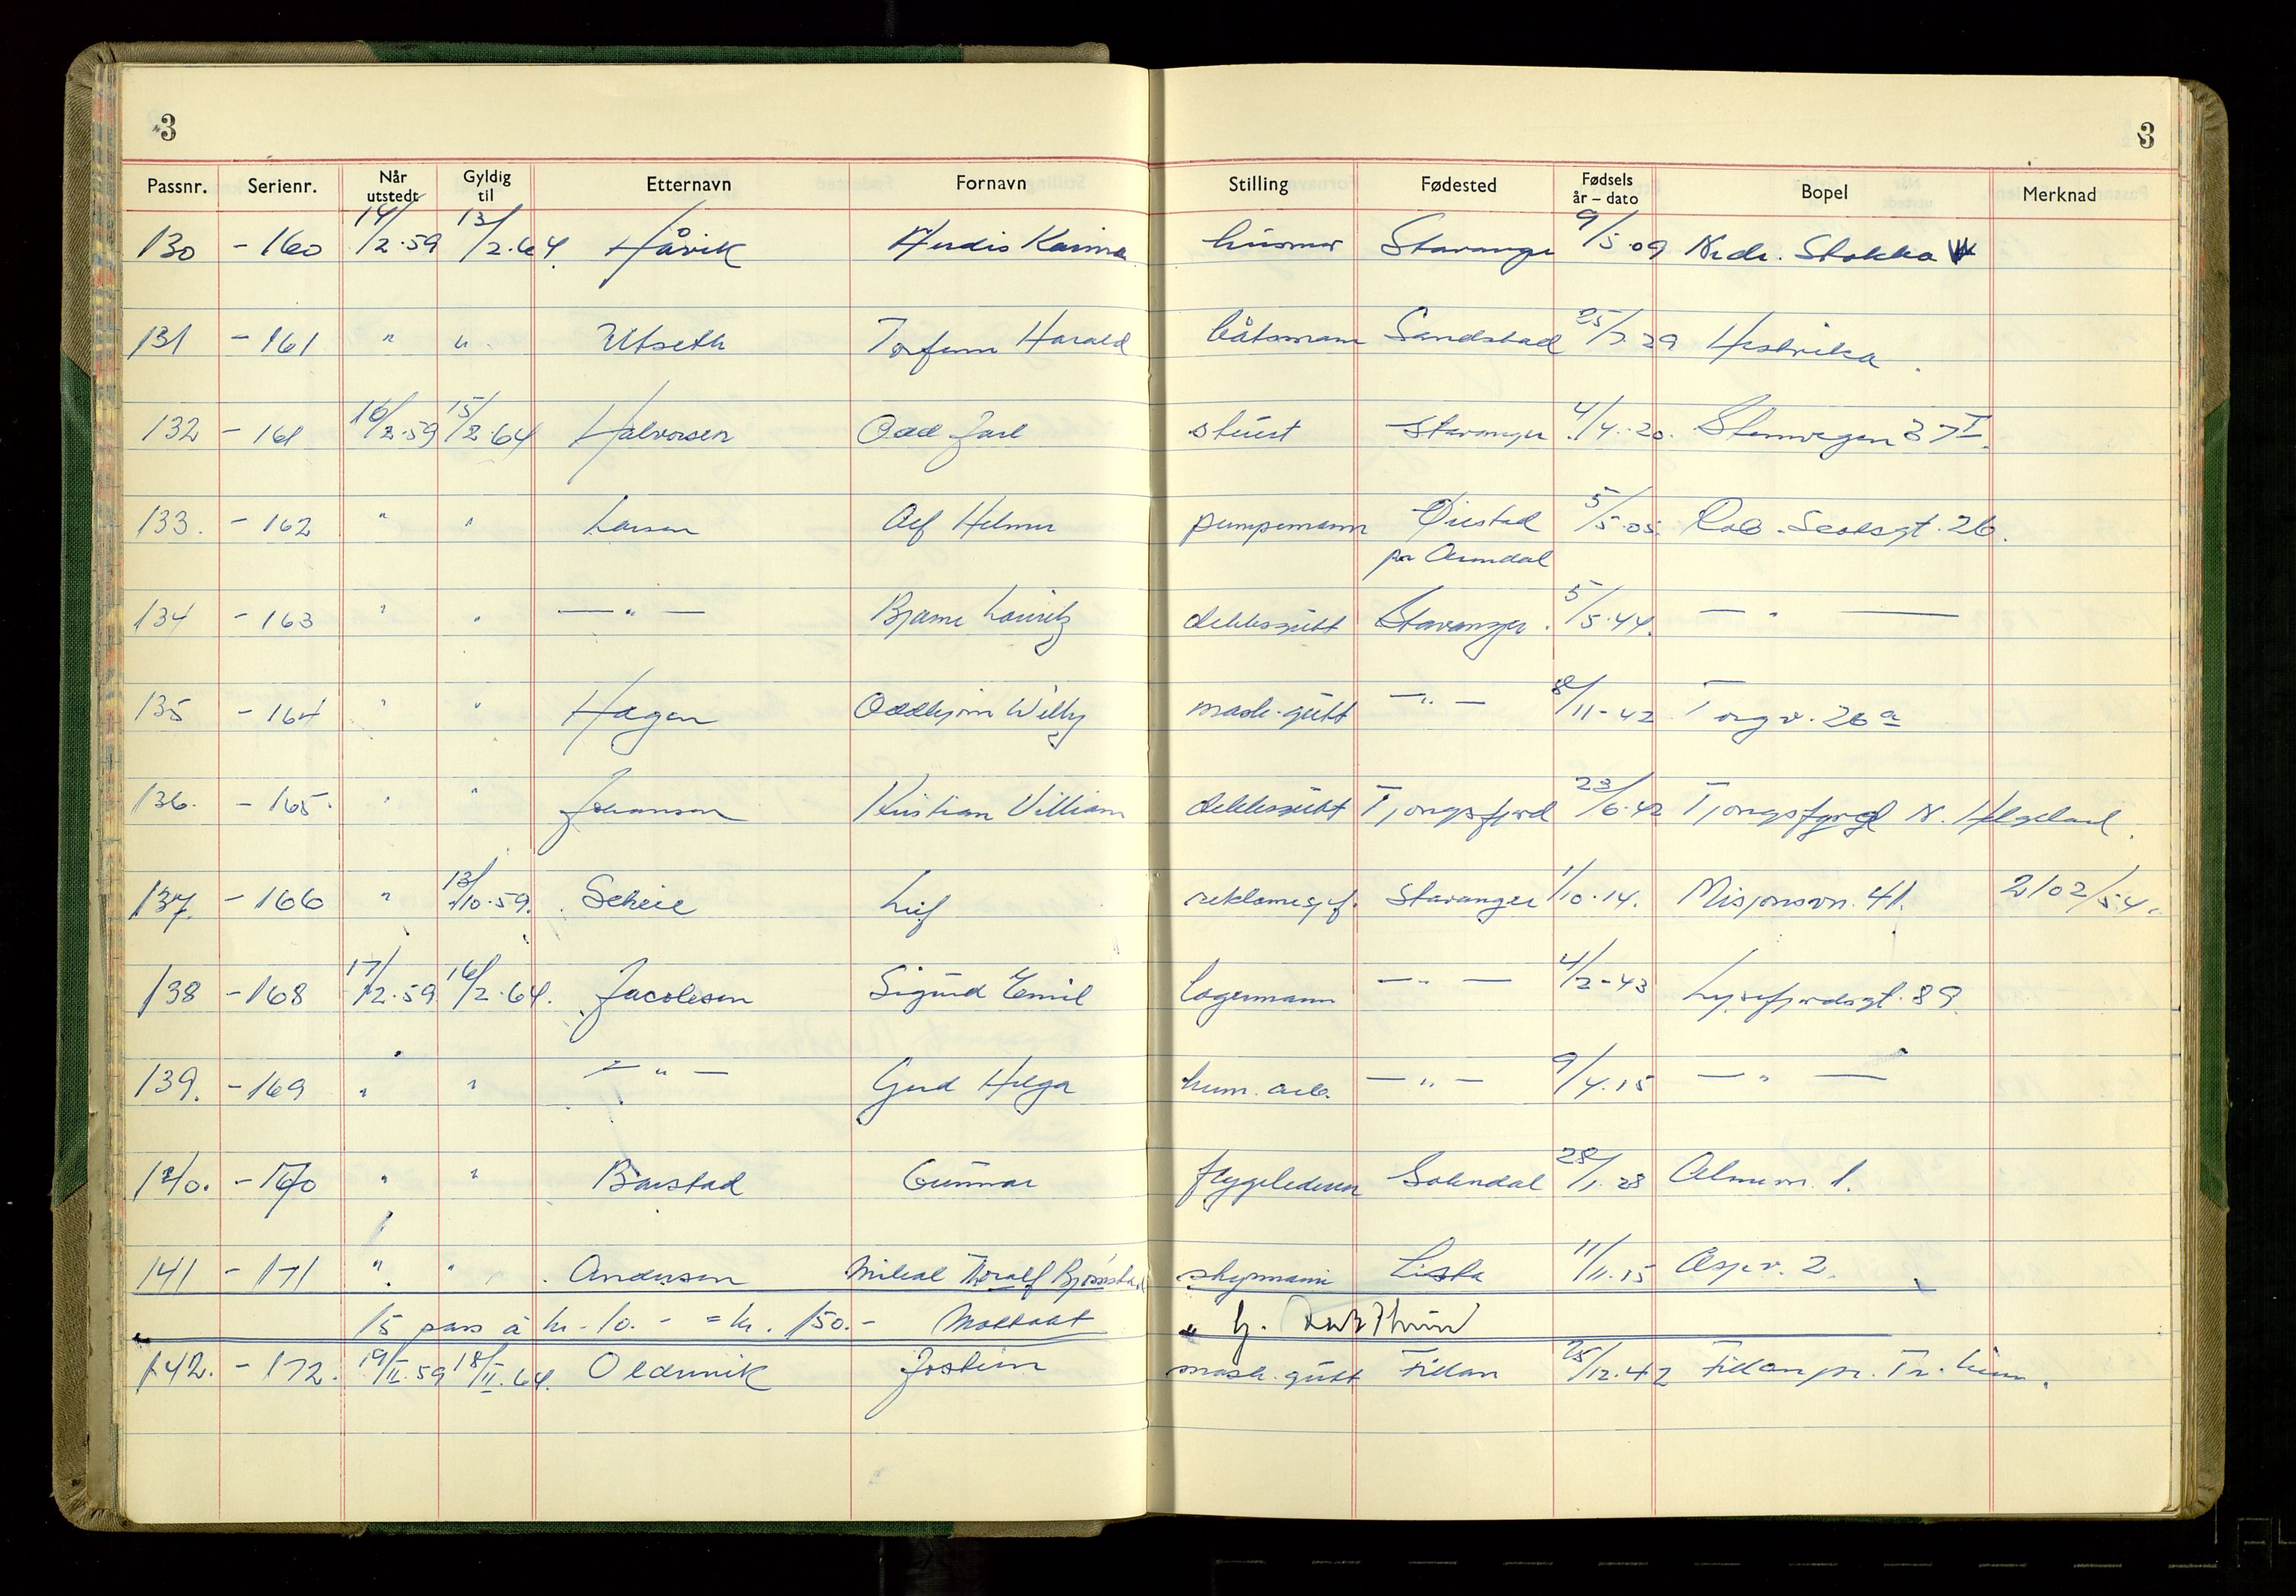 3 3
Passnr. Serienr. Når utstedt Gyldig til Etternavn Fornavn Stilling Fødested Fødsels år – dato Bopel Merknad
130 - 160 14/2.59 13/2.64 Håvik Herdis Karina husmor Stavanger 9/5.09 Nedr. Stokka
131 - 161 " " Utseth Torfinn Harald båtsmann Sandstad 25/7 29 Hestvika
132 - 161 16/2.59 15/2.64 Halvorsen Odd Jarl stuert Stavanger 4/4.20. Stenvegen 37 I
133. - 162 " " Larsen Alf Helmer pumpemann Øiestad 5/5.05. Rob. Scotsgt. 26.
pr Arendal
134 - 163 " " — " — Bjarne Lauritz dekksgutt Stavanger. 5/5.44. — " —
135 - 164 " " Hagen Oddbjørn Willy mask.gutt — " — 8/11-42 Torgv. 26 a
136. - 165. " " Johansen Kristian Villiam dekksgutt Tjongsfjord 23/6.42 Tjongsfjord N. Helgeland.
137. - 166 " 13/10.59. Scheie Leif reklamesjef. Stavanger 1/10.14. Misjonsvn. 41. 2102/54.
138 - 168 17/2.59 16/2.64. Jacobsen Sigurd Emil lagermann — " — 4/2-43 Lysefjordsgt. 89.
139. - 169 " " — " — Gerd Helga hum. arb. — " — 9/4.15 — " —
140. - 170 " " Barstad Gunnar flygelederass Sokndal 28/1.28 1.
141 - 171 " " Andersen Mikal Thoralf styrmann Lista 11/11.15 Aspv. 2.
15 pass à kr. 10.- = kr. 150.- Mottatt
142. - 172. 19/II.59 18/II.64. Oldervik Jostein mask.gutt Fillan 25/12.42 Fillan pr. Tr.heim.